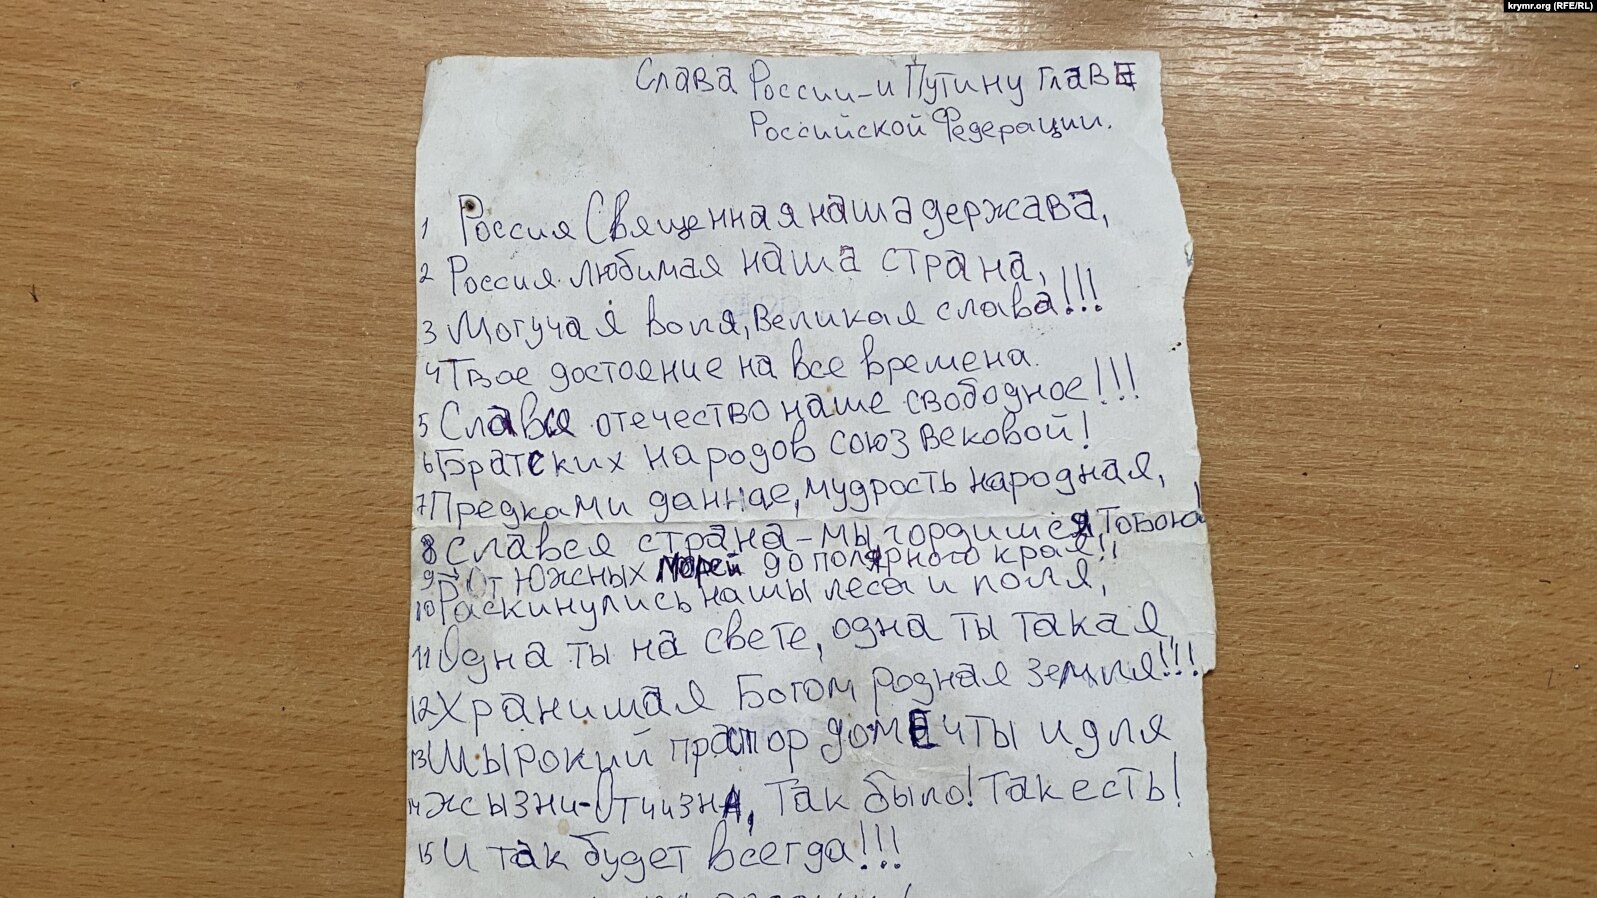 krymr.org (RFE/RL)
Слава России-и Путину главе
Российской Федерации.
1 Россия Священная наша держава,
2 Россия любимая наша страна,
3 Могучая воля, Великая слава!!!
4 Твое достоение на все времена.
5 Слався отечество наше свободное!!!
6 Братских народов союз вековой!
7 Предками данное, мудрость народная,
8 Славься страна-мы гордимся Тобою!
9 От Южных морей до полярного края!!
10 Раскинулись нашы леса и поля,
11 Одна ты на свете, одна ты такая
12 Хранимая Богом родная земля!!!
13 Шырокий простор доме чты и для
14 жызни-Отчизна, Так было! Так есть!
15 И так будет всегда!!!